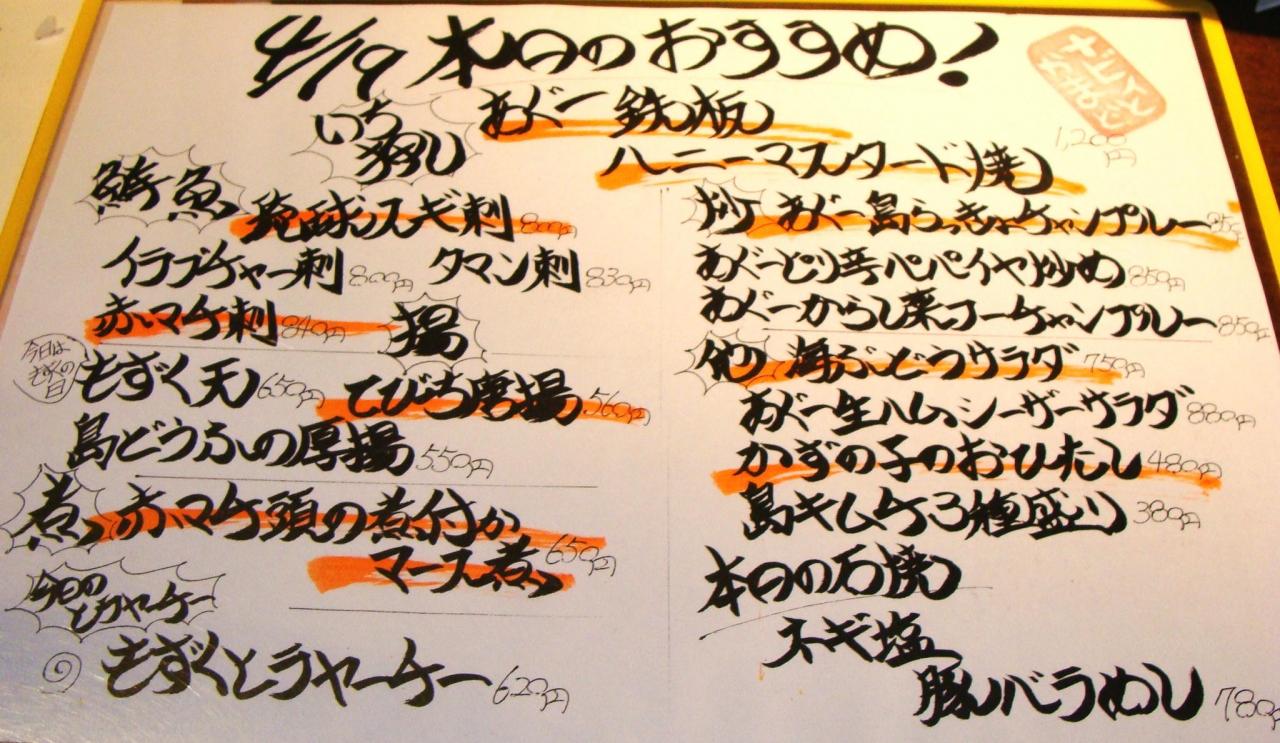 4/19 本日のおすすめ!
いち押し
あぐー鉄板
ハニーマスタード焼
1,200円
鮮魚
琉球スギ刺 800円
イラブチャー刺 800円
タマン刺 830円
赤マチ刺 840円
揚
今日はもずくの日
もずく天 650円
てびち唐揚 560円
島どうふの厚揚 550円
煮
赤マチ頭の煮付か
マース煮 650円
今日の
ヒラヤーチー
もずくヒラヤーチー 620円
炒
あぐー島らっきょチャンプルー 850円
あぐーピリ辛パパイヤ炒め 850円
あぐーからし菜フーチャンプルー 850円
他
海ぶどうサラダ 750円
あぐー生ハムシーザーサラダ 880円
かずの子のおひたし 480円
島キムチ3種盛り 380円
本日の石焼
ネギ塩
豚バラめし 780円